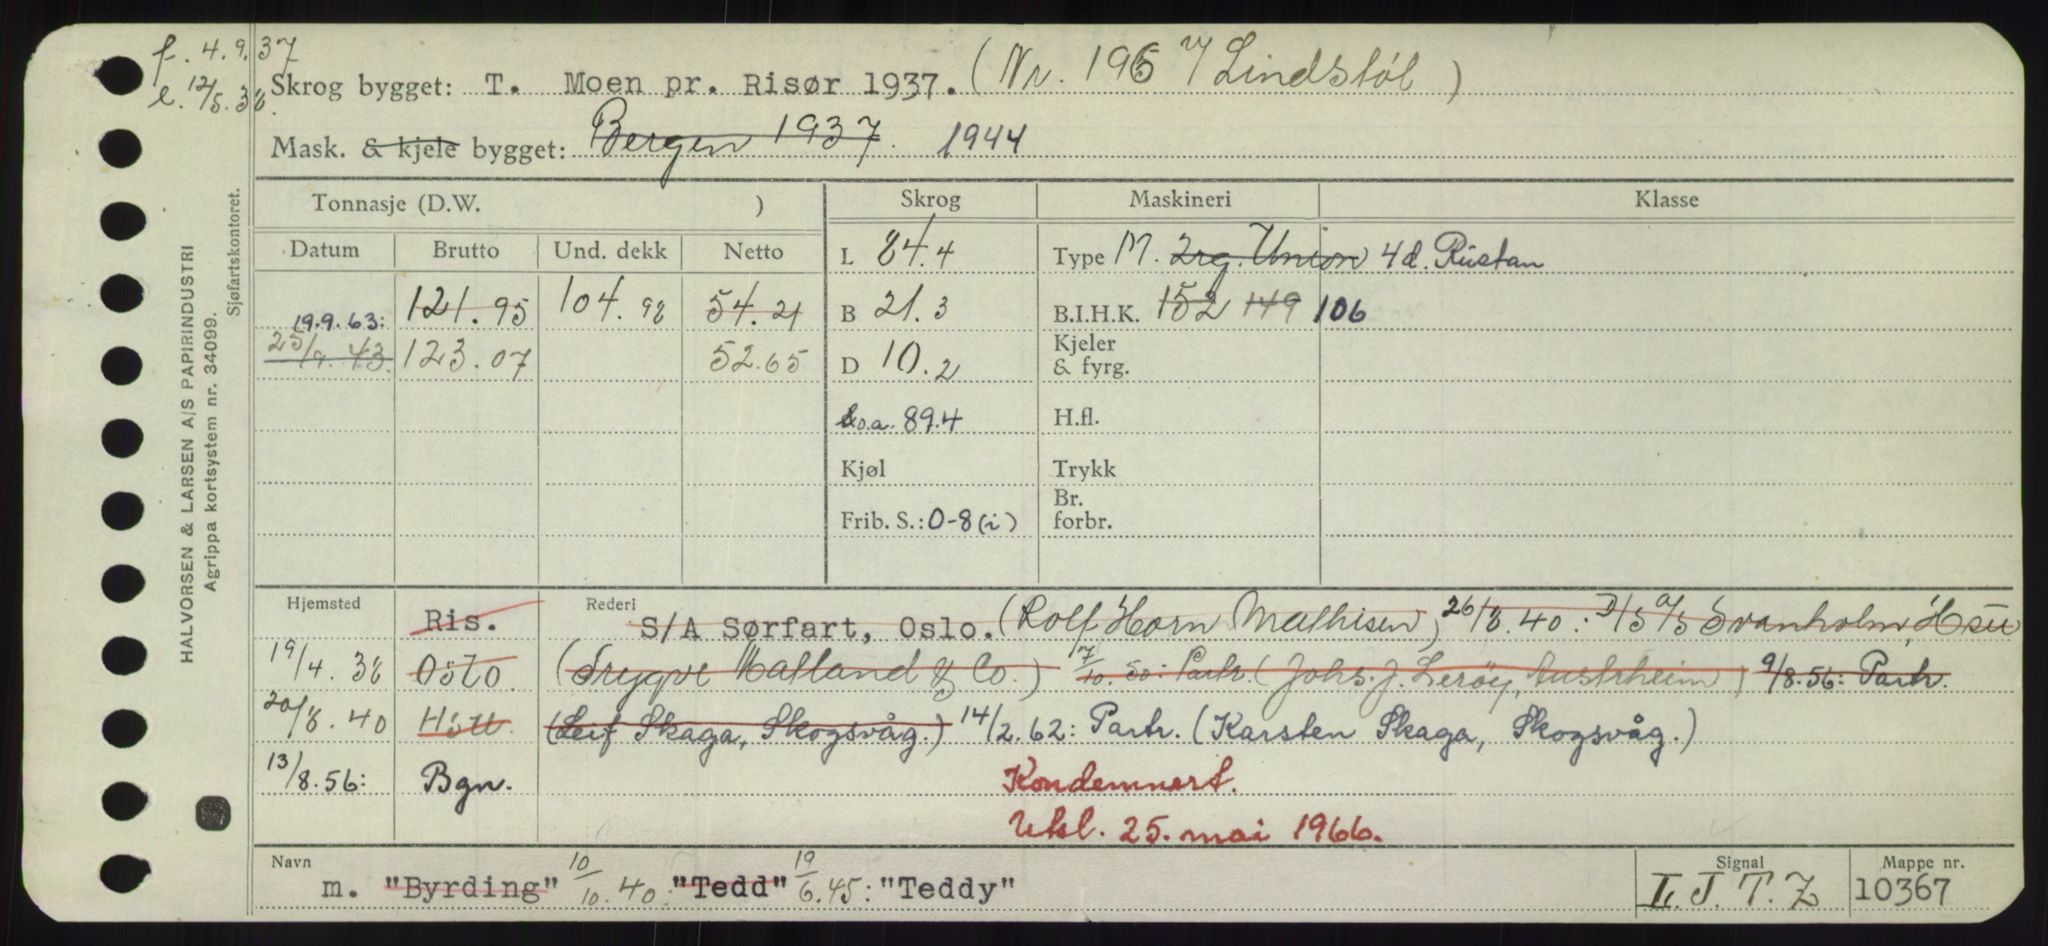 f. 4.9.37
e. 12/5.38.
Skrog bygget: T. Moen pr. Risør 1937. (Nr. 195 Lindstøl)
Mask. & kjele bygget: Bergen 1937. 1944
Tonnasje (D.W. ) Skrog Maskineri Klasse
Datum Brutto Und. dekk Netto L 84.4 Type M. 2rg. Union 4 d. Rustan
121.95 104.98 54.21 B 21.3 B.I.H.K. 152 149 106
19.9.63:
25/9.43. 123.07 52.65 D 10.2 Kjeler & fyrg.
L.o.a. 89.4 H.fl.
Kjøl Trykk
Frib. S.: 0-8 (i) Br. forbr.
Hjemsted Rederi
Ris. S/A Sørfart, Oslo. (Rolf Horn Mathisen) 26/8.40: D/S A/S Svanholm, Hsu
19/4.38 Oslo. (Trygve Matland & Co.) 7/10.50: Partr. (Johs. J. Lerøy, Austrheim) 9/8.56: Partr.
20/8.40 (Leif Skaga, Skogsvåg.) 14/2.62: Partr. (Karsten Skaga, Skogsvåg.)
13/8.56: Bgn. Kondemnert.
Utsl. 25. mai 1966.
Navn Signal Mappe nr.
m. "Byrding" 10/10.40: "Tedd" 19/6.45: "Teddy" L.J.T.Z 10367
HALVORSEN & LARSEN A/S PAPIRINDUSTRI
Agrippa kortsystem nr. 34099.
Sjøfartskontoret.